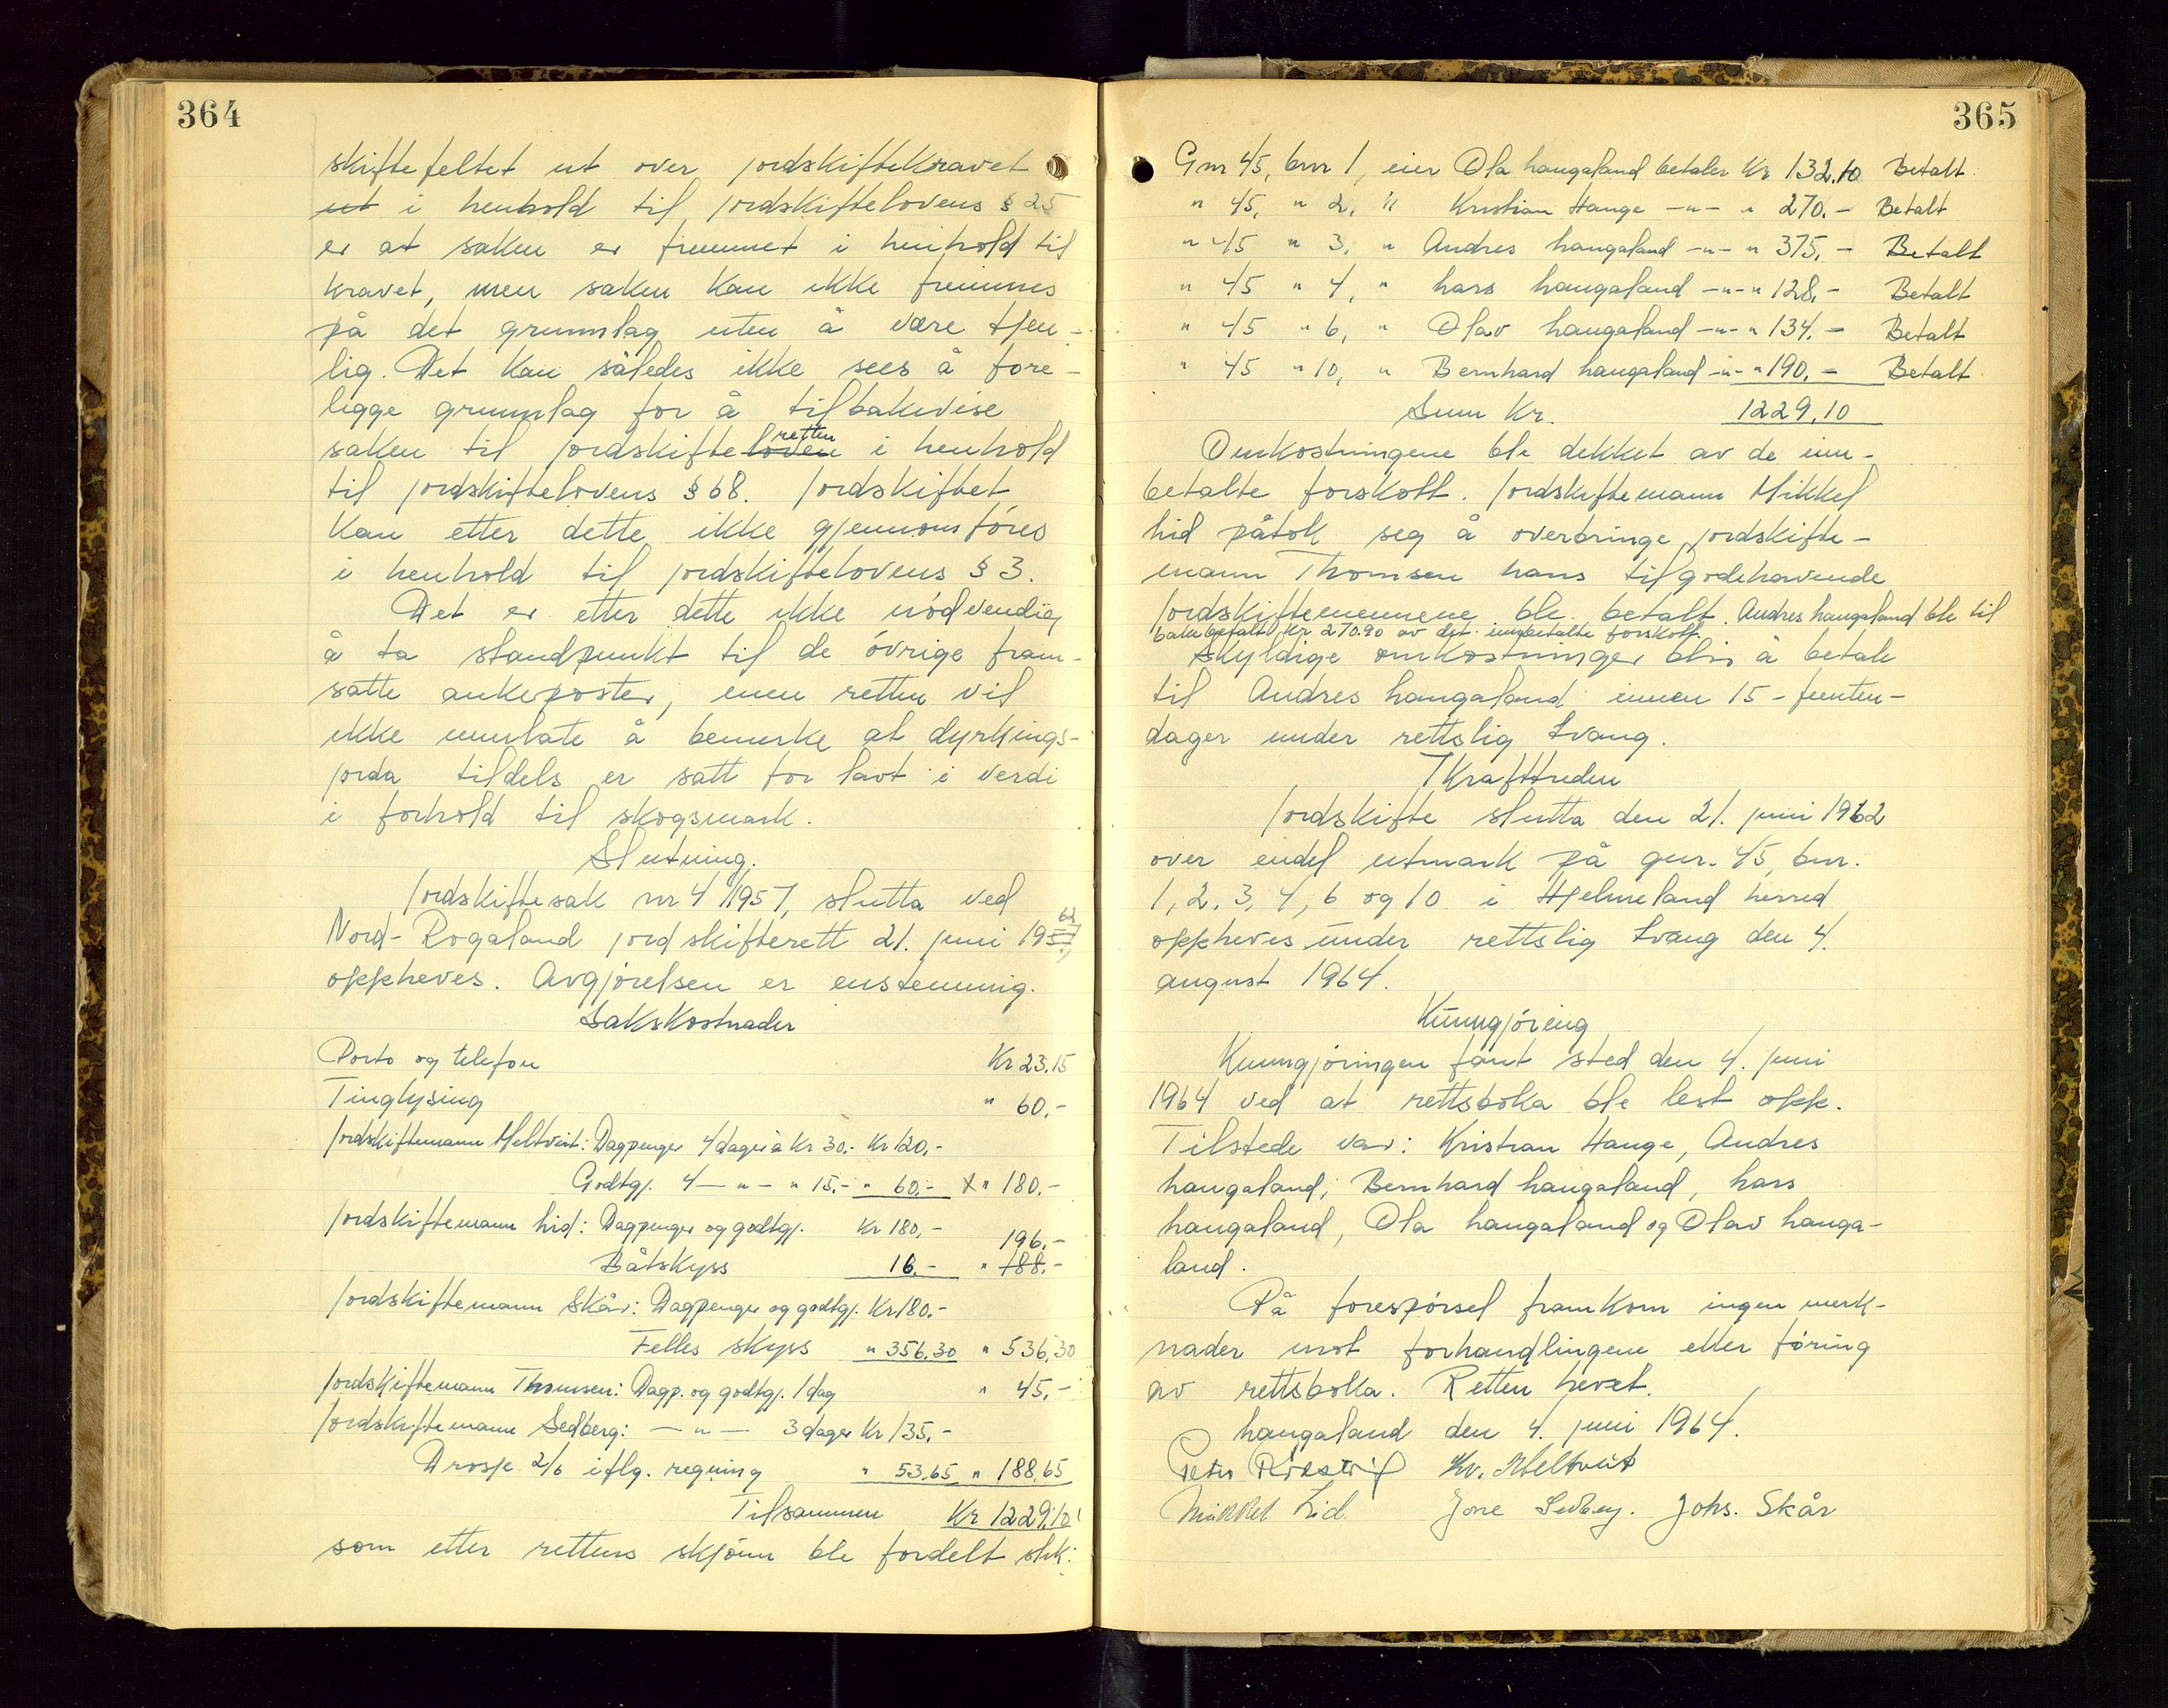 364
skiftefeltet ut over jordskiftekravet
ut i henhold til jordskiftelovens § 25
er at saken er fremmet i henhold til
kravet, men saken kan ikke fremmes
på det grunnlag uten å være tjen-
lig. Det kan således ikke sees å fore-
ligge grunnlag for å tilbakevise
retten
saken til jordskifteloven i henhold
til jordskiftelovens § 68. Jordskiftet
kan etter dette ikke gjennomföres
i henhold til jordskiftelovens § 3.
Det er etter dette ikke nödvendig
å ta standpunkt til de övrige fram-
satte ankeposter, men retten vil
ikke unnlate å bemerke at dyrkings-
jorda tildels er satt for lavt i verdi
i forhold til skogsmark.
Slutning.
Jordskiftesak nr 4/1957, slutta ved
62
Nord-Rogaland jordskifterett 21. juni 1957,
oppheves. Avgjörelsen er enstemmig.
Sakskostnader
Porto og telefon Kr 23.15
Tinglysing " 60.-
Jordskiftemann Meltveit: Dagpenger 4 dager à Kr 30.- Kr 120.-
Godtgj. 4 — " — " 15.- " 60.- " 180.-
Jordskiftemann Lid: Dagpenger og godtgj. Kr 180.-
196.-
Båtskyss 16.- " 188.-
Jordskiftemann Skår: Dagpenger og godtgj. Kr 180.-
Felles skyss " 356.30 " 536,30
Jordskiftemann Thomsen: Dagp. og godtgj. 1 dag " 45.-
Jordskiftemann Sedberg: — " — 3 dager Kr 135.-
Drosje 2/6 iflg. regning " 53,65 " 188,65
Tilsammen Kr 1229.10
som etter rettens skjönn ble fordelt slik:
365
Gnr 45, bnr 1, eier Ola Haugaland betaler Kr 132.10 Betalt
" 45, " 2, " Kristian Hauge -"- " 270.- Betalt
" 45 " 3, " Andres Haugaland -"- " 375.- Betalt
" 45 " 4, " Lars Haugaland -"- " 128.- Betalt
" 45 " 6, " Olav Haugaland -"- " 134.- Betalt
" 45 " 10, " Bernhard Haugaland -"- " 190.- Betalt
Sum Kr. 1229,10
Omkostningene ble dekket av de inn-
betalte forskott. Jordskiftemann Mikkel
Lid påtok seg å overbringe jordskifte-
mann Thomsen hans tilgodehavende
Jordskiftemennene ble betalt. Andres Haugaland ble til
bakebetalt Kr 270.90 av det innbetalte forskott.
Skyldige omkostninger blir å betale
til Andres Haugaland innen 15 - femten -
dager under rettslig tvang.
Ikrafttreden
Jordskifte slutta den 21. juni 1962
over endel utmark på gnr. 45, bnr.
1, 2, 3, 4, 6 og 10 i Hjelmeland herred
oppheves under rettslig tvang den 4.
august 1964.
Kunngjöring
Kunngjöringen fant sted den 4. juni
1964 ved at rettsboka ble lest opp.
Tilstede var: Kristian Hauge, Andres
Haugaland, Bernhard Haugaland, Lars
Haugaland, Ola Haugaland og Olav Hauga-
land.
På forespörsel framkom ingen merk-
nader mot forhandlingene eller föring
av rettsboka. Retten hevet.
Haugaland den 4. juni 1964.
Peter Kv. Meltveit
Mikkel Lid. Jone Sedberg. Johs. Skår